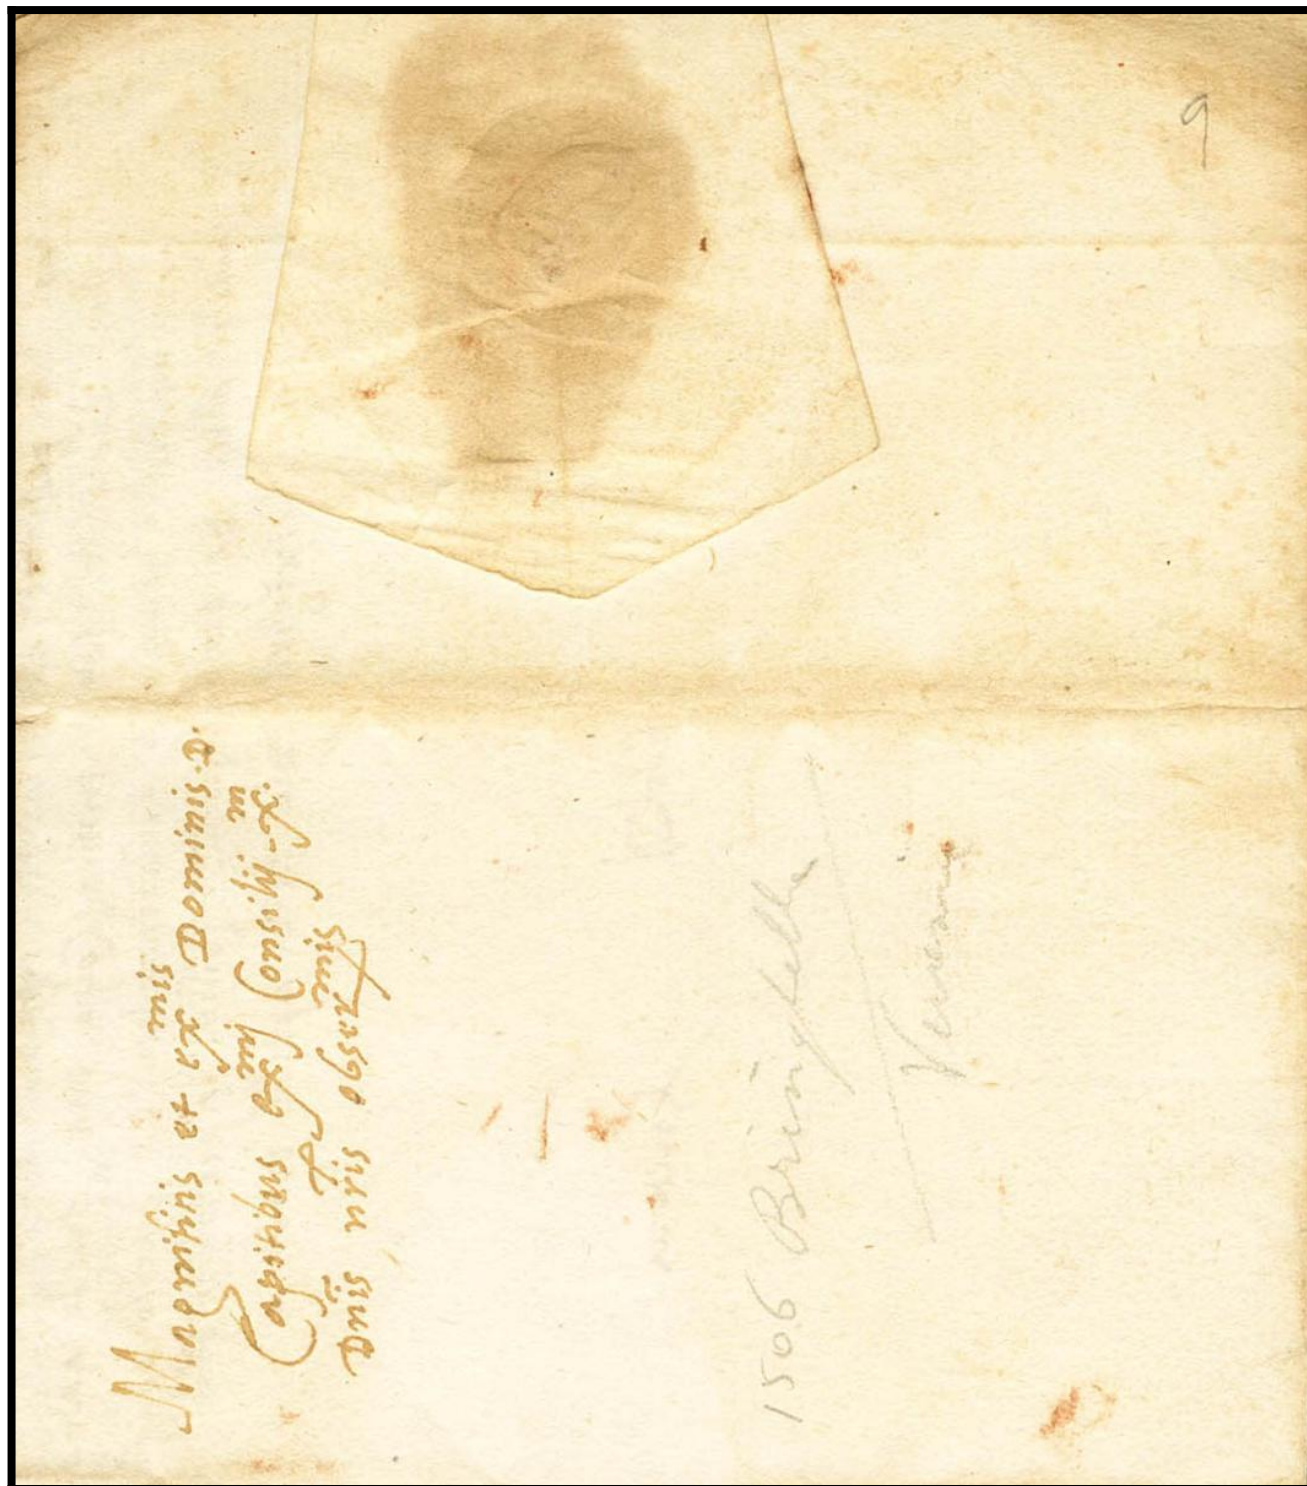 Magnificis et ex.mis Dominis D.
Capitibus ex.mi Consilij X.m
Dnis nris obser.mis
1506 Brisighella
Venezia
9